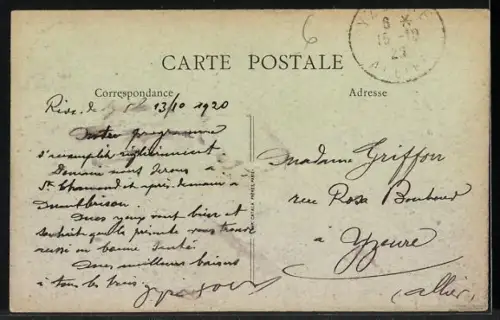 CARTE POSTALE
Correspondance
Adresse
6
8 *
15-10
20
ALLIER
Rive de 13/10 1920
Notre programme
s'accomplit régulièrement.
Demain nous serons à
St Chamond et après demain à
Montbrison.
Mes yeux vont bien et
souhait que la présente vous trouve
aussi en bonne santé
Mes meilleurs baisers
à tous les trois
Madame Griffon
rue Rosa Bonheur
à Yzeure
(Allier)